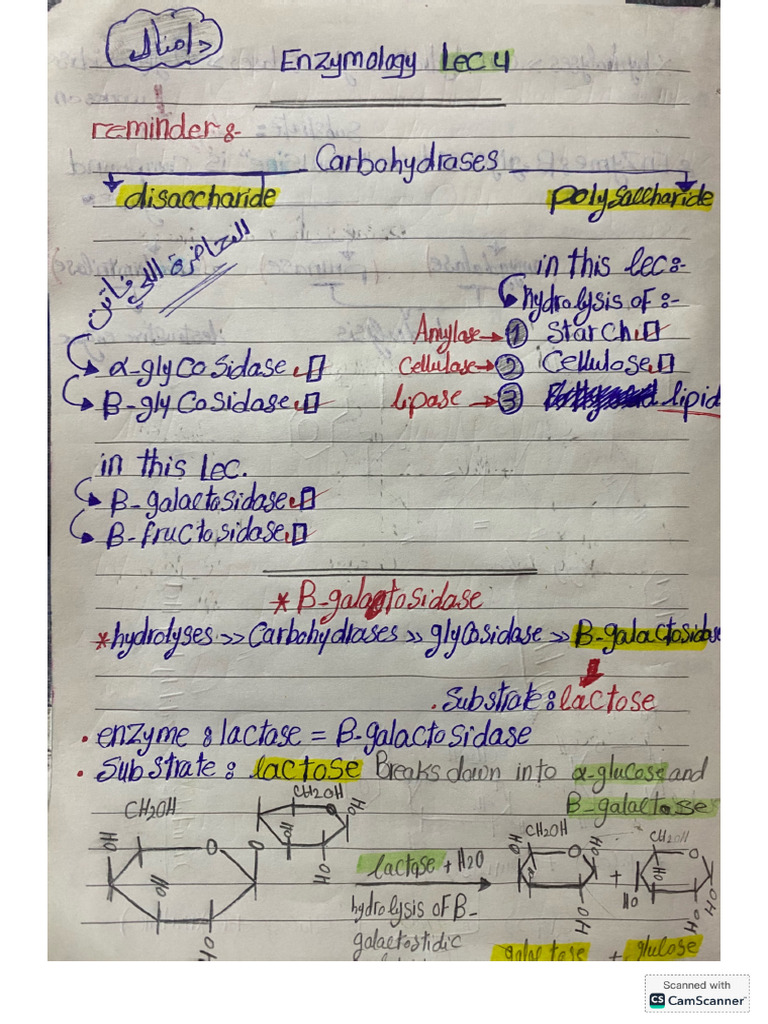 دانيال
Enzymology Lec 4
reminder:-
Carbohydrases
disaccharide
polysaccharide
المحاضرة اللي فاتت
α-glycosidase.
B-glycosidase.
in this lec:-
hydrolysis of:-
Amylase → ① Starch.
Cellulase → ② Cellulose.
lipase → ③ lipid
in this Lec.
B-galactosidase.
B-fructosidase.
* B-galactosidase
* hydrolyses >> Carbohydrases >> glycosidase >> B-galactosidase
. Substrate: lactose
. enzyme: lactase = B-galactosidase
. Substrate: lactose Breaks down into α-glucose and
B-galactose
CH2OH
CH2OH
HO
HO
HO
HO
O
O
OH
OH
lactase + H2O
hydrolysis OF B-
galactostidic
CH2OH
HO
HO
O
OH
+
CH2OH
HO
HO
O
OH
OH
galactose + glulose
Scanned with
CS CamScanner